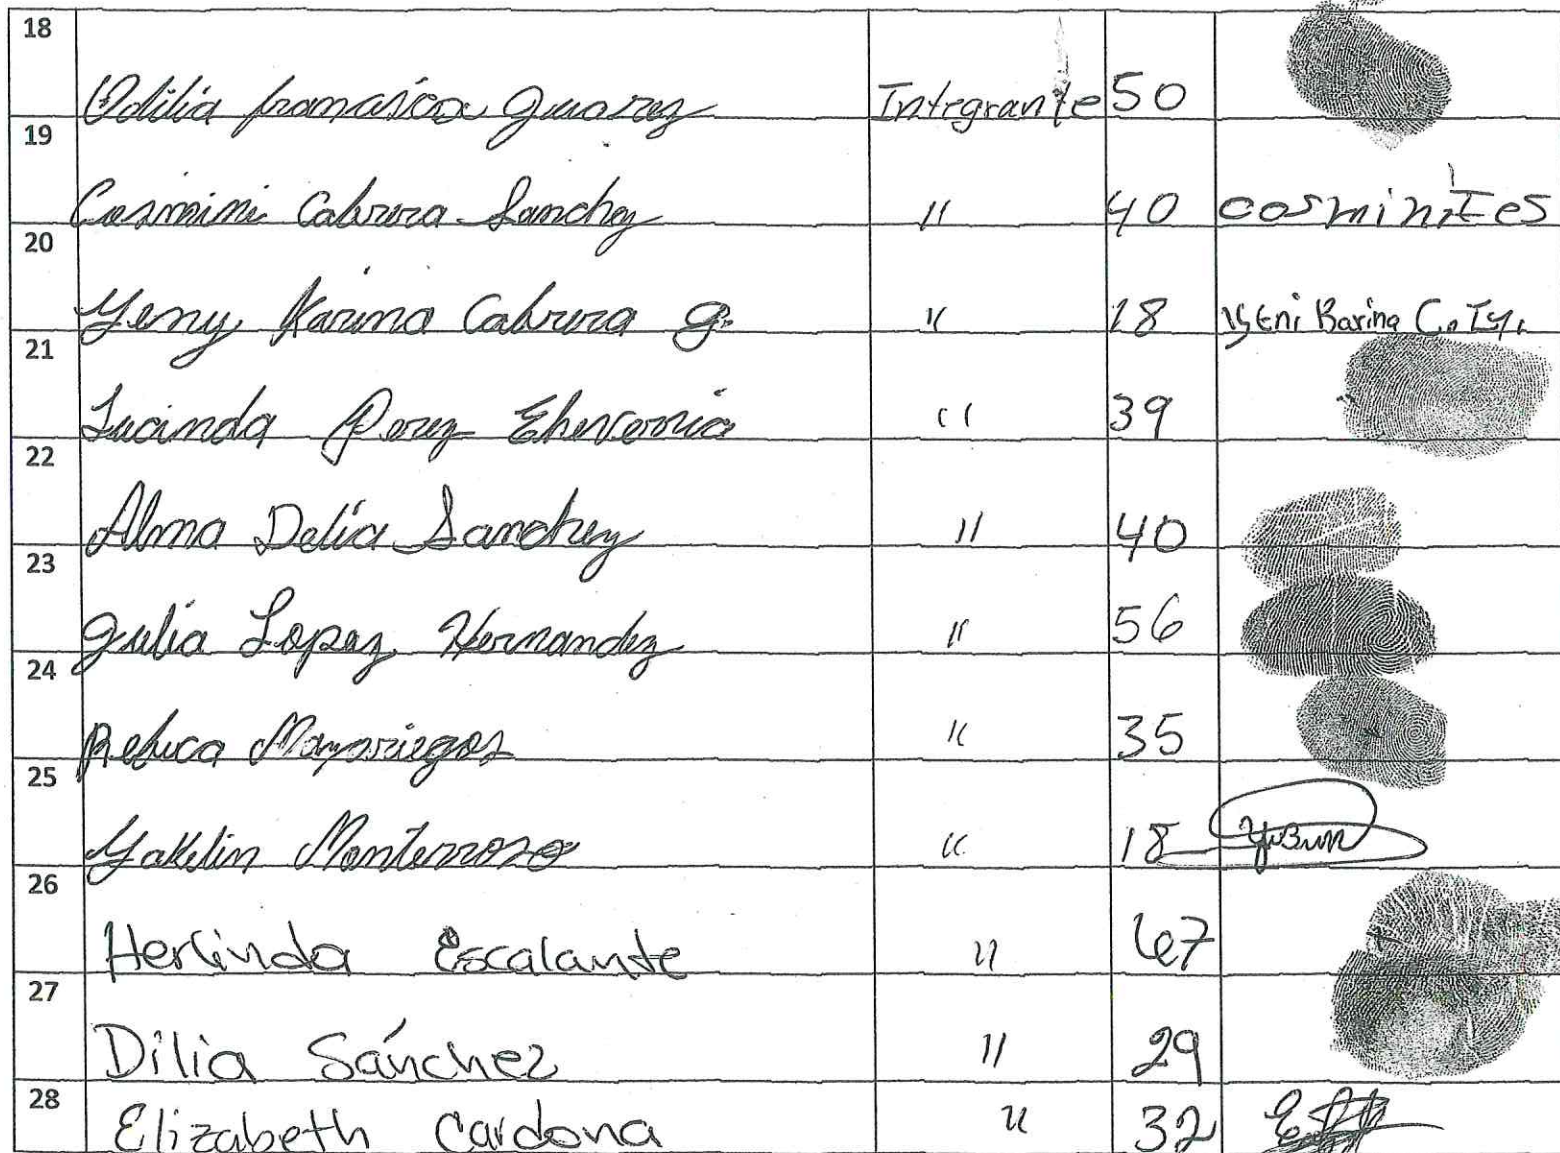 18 Odilia francisca Juarez Integrante 50
19 Cosmini Cabrera Sanchez " 40 cosminIes
20 Yeny Karina Cabrera G. " 18 Karina C.
21 Lucinda Perez Eheverria " 39
22 Alma Delia Sanchez " 40
23 Julia Lopez Hernandez " 56
24 Rebeca Mazariegos " 35
25 Yakelin Monterroso " 18
26 Herlinda Escalante " 67
27 Dilia Sánchez " 29
28 Elizabeth Cardona " 32